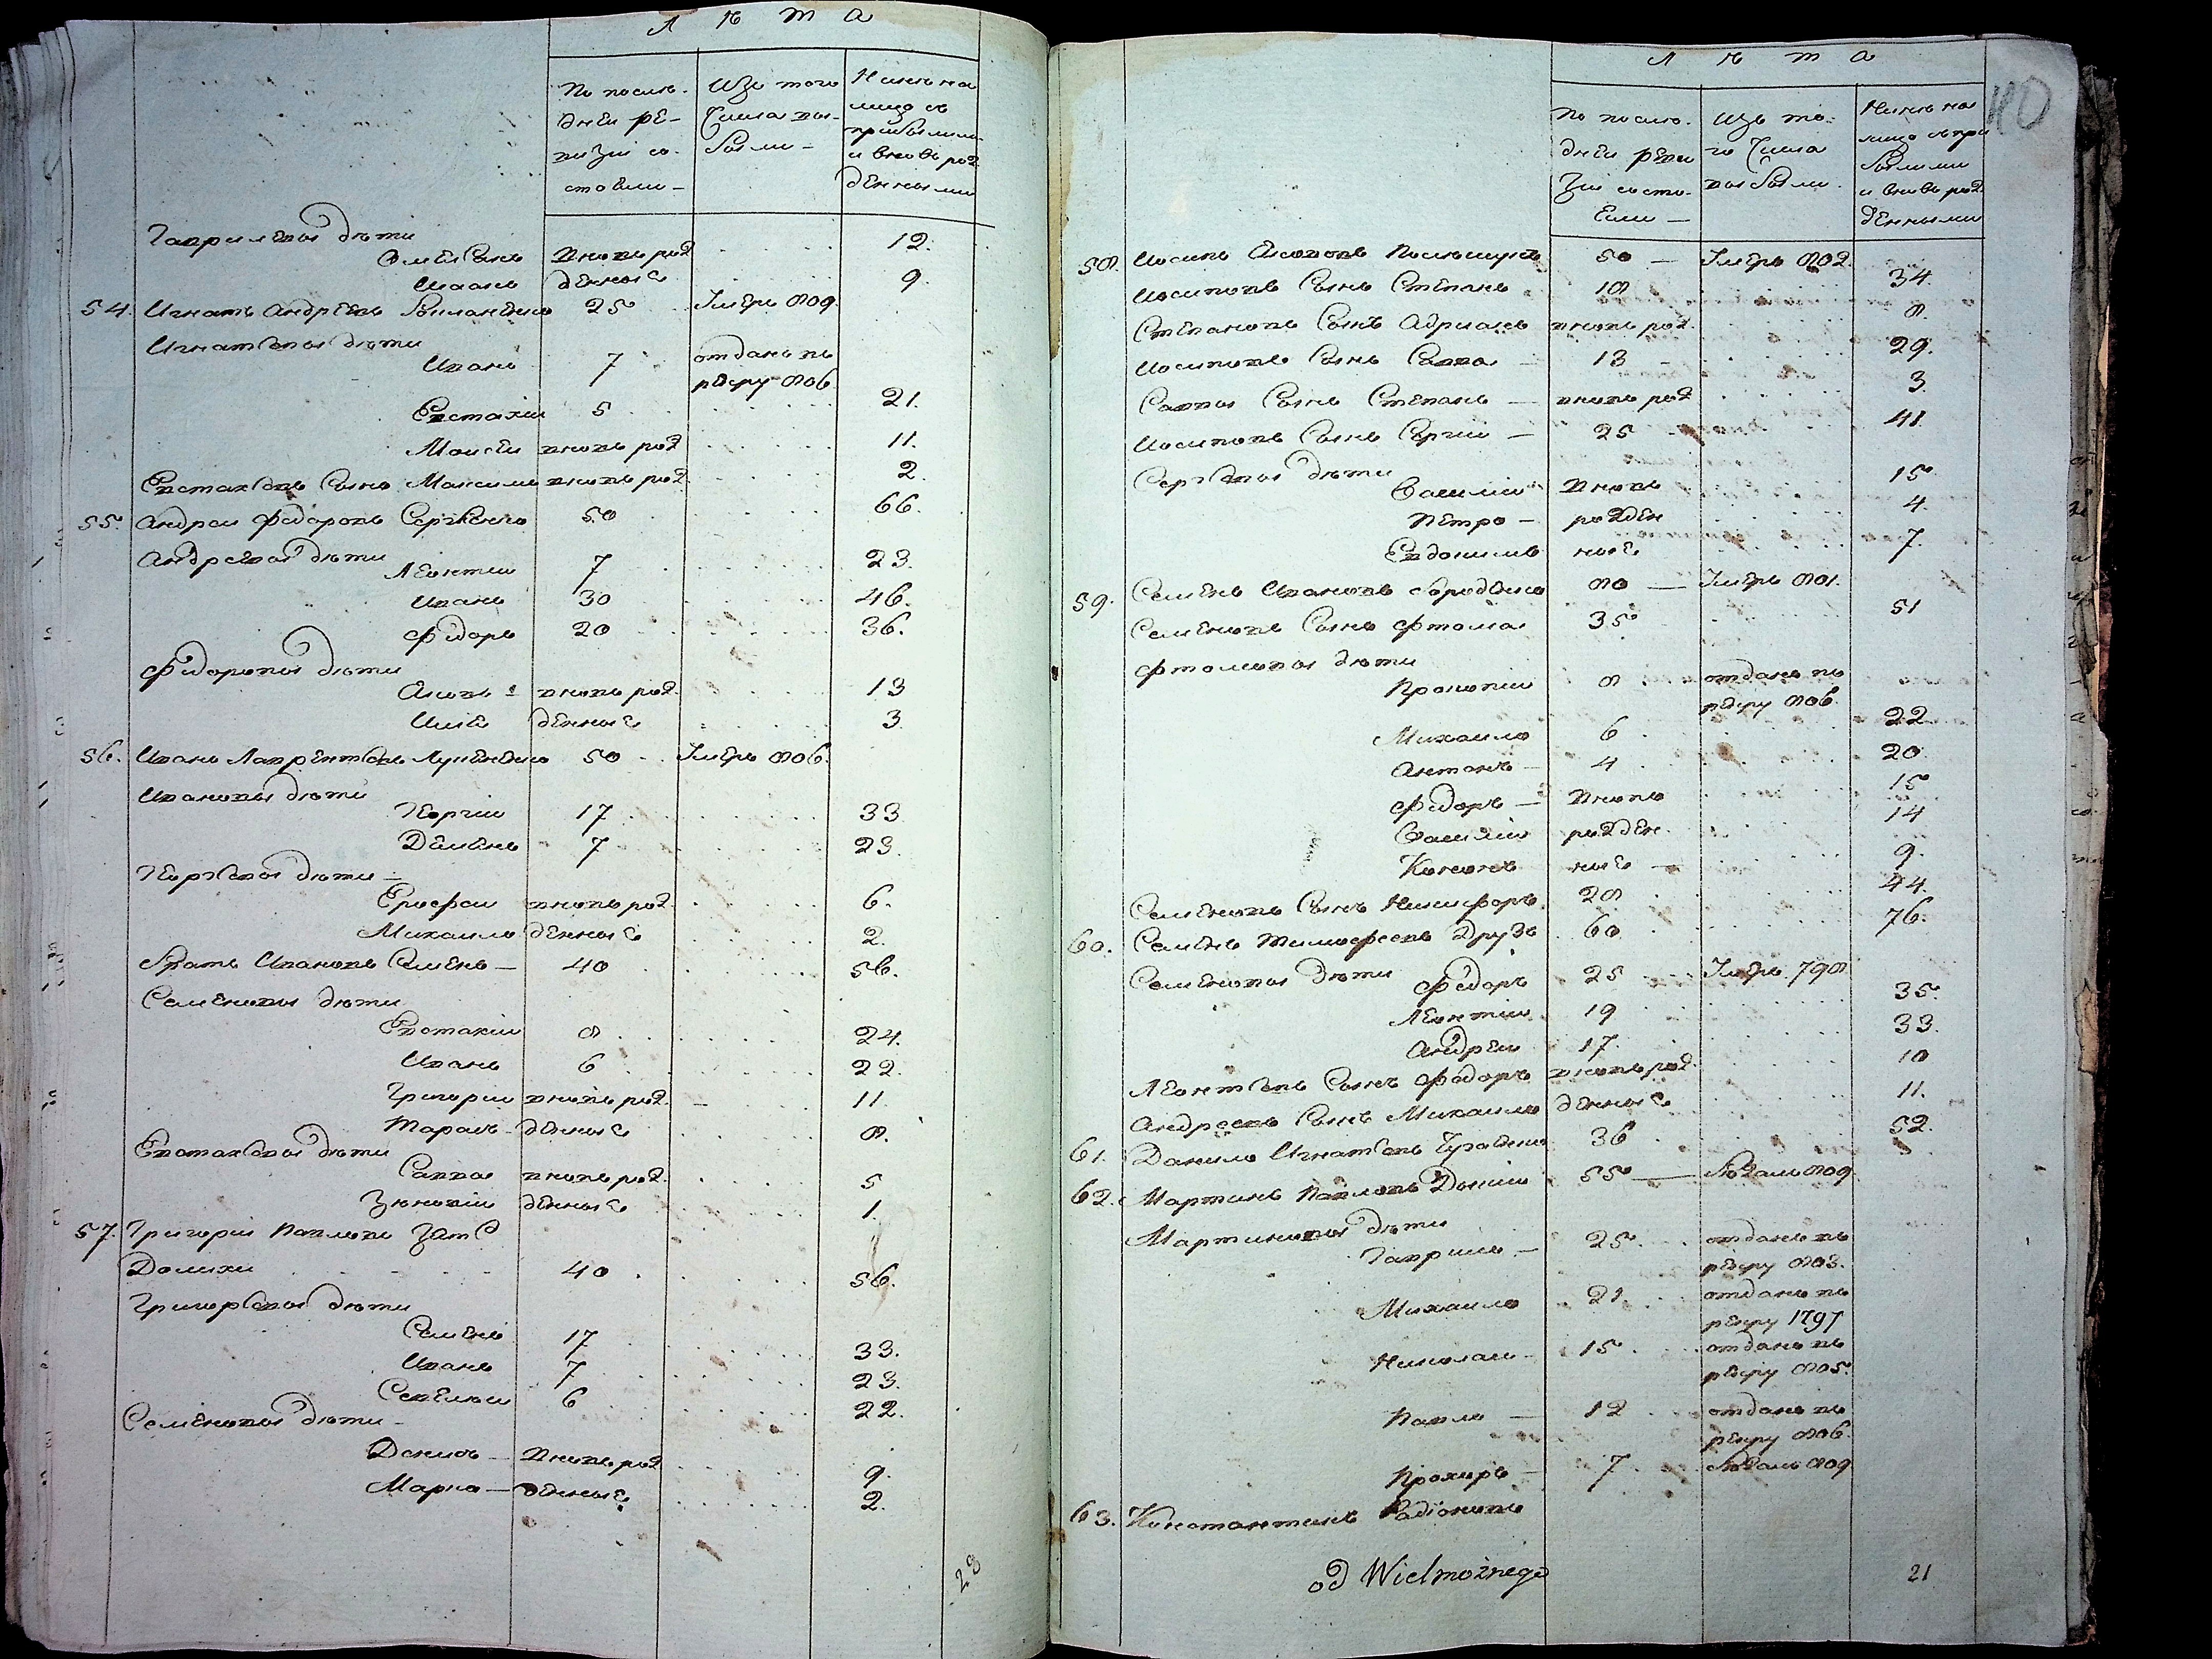 Лѣта
По послѣ-
дней ре-
визіи со-
стояли
Изъ того
Числа вы-
были
Нынѣ на
лицо съ
прибылыми
и вновь рож
денными
Гавриловы дѣти
вновь рож 12.
Иванъ денные 9.
54. Игнатъ Андреевъ 25 Умеръ 809.
Игнатьевы дѣти
Иванъ 7 отданъ въ
рекру 806
Евстахій 5 21.
Моисей вновь рож 11.
Евстахіевъ Сынъ Максимъ вновь рож 2.
55. Андрей Федоровъ Сергѣенко 50 66.
Андреевы дѣти
Леонтій 7 23.
Иванъ 30 46.
Федоръ 20 36.
Федоровы дѣти
вновь рож. 13
Илія денные 3
56. Иванъ Лаврентіевъ 50 Умеръ 806.
Ивановы дѣти
Георгій 17 33
7 23.
Георгіевы дѣти
Ерофей вновь рож. 6.
Михайло денные 2.
братъ Ивановъ Семенъ 40 56.
Семеновы дѣти
Евстахій 8 24.
Иванъ 6 22.
Григорій вновь рож. 11.
Тарасъ денные 8.
Евстахіевы дѣти
Савва вновь рож. 5
Зѣновій денные 1.
57. Григорій Павловъ зять
40 56.
Григорьевы дѣти
Семенъ 17 33.
Иванъ 7 23.
Савелій 6 22.
Семеновы дѣти
Денисъ вновь рож 9.
Марко денные 2.
23
Лѣта
По послѣ-
дней реви
зіи состо-
яли
Изъ то-
го Числа
выбыли
Нынѣ на
лицо съ при
былыми
и вновь рож
денными
58. Іосипъ 50 Умеръ 802.
Іосиповъ Сынъ Степанъ 18 34.
Степановъ Сынъ Адріанъ вновь рож. 8
Іосиповъ Сынъ Савва 13 29.
Саввы Сынъ Степанъ вновь рож 3.
Іосиповъ Сынъ Сергій 25 41
Сергѣевы дѣти
Василій вновь 15
Петро рожден 4.
Евдокимъ ные 7.
59. Семенъ Ивановъ 80 Умеръ 801.
Семеновъ Сынъ Фтома 35 51
Фтомовы дѣти
Прокопій 8 отданъ въ
рекру 806.
Михайло 6 22.
Антонъ 4 20.
Федоръ вновь 15
Василій рожден 14
Кононъ ные 9.
Семеновъ Сынъ Никифоръ 28 44.
60. Семенъ Тимофеевъ Друзь 60 76.
Семеновы дѣти Федоръ 25 Умеръ 798
Леонтій 19 35.
Андрей 17 33.
Леонтіевъ Сынъ Федоръ вновь рож. 10
Андреевъ Сынъ Михайло денные 11.
61. Данило Игнатьевъ 36 52.
62. Мартинъ Павловъ 55 бѣжалъ 809
Мартиновы дѣти
Гаврило 25 отданъ въ
рекру 803.
Михайло 21 отданъ въ
рекру 1797
Николай 15 отданъ въ
рекру 805.
Павло 12 отданъ въ
рекру 806.
Прохоръ 7 бѣжалъ 809
63. Константинъ Радіоновъ
od Wielmożnego
21